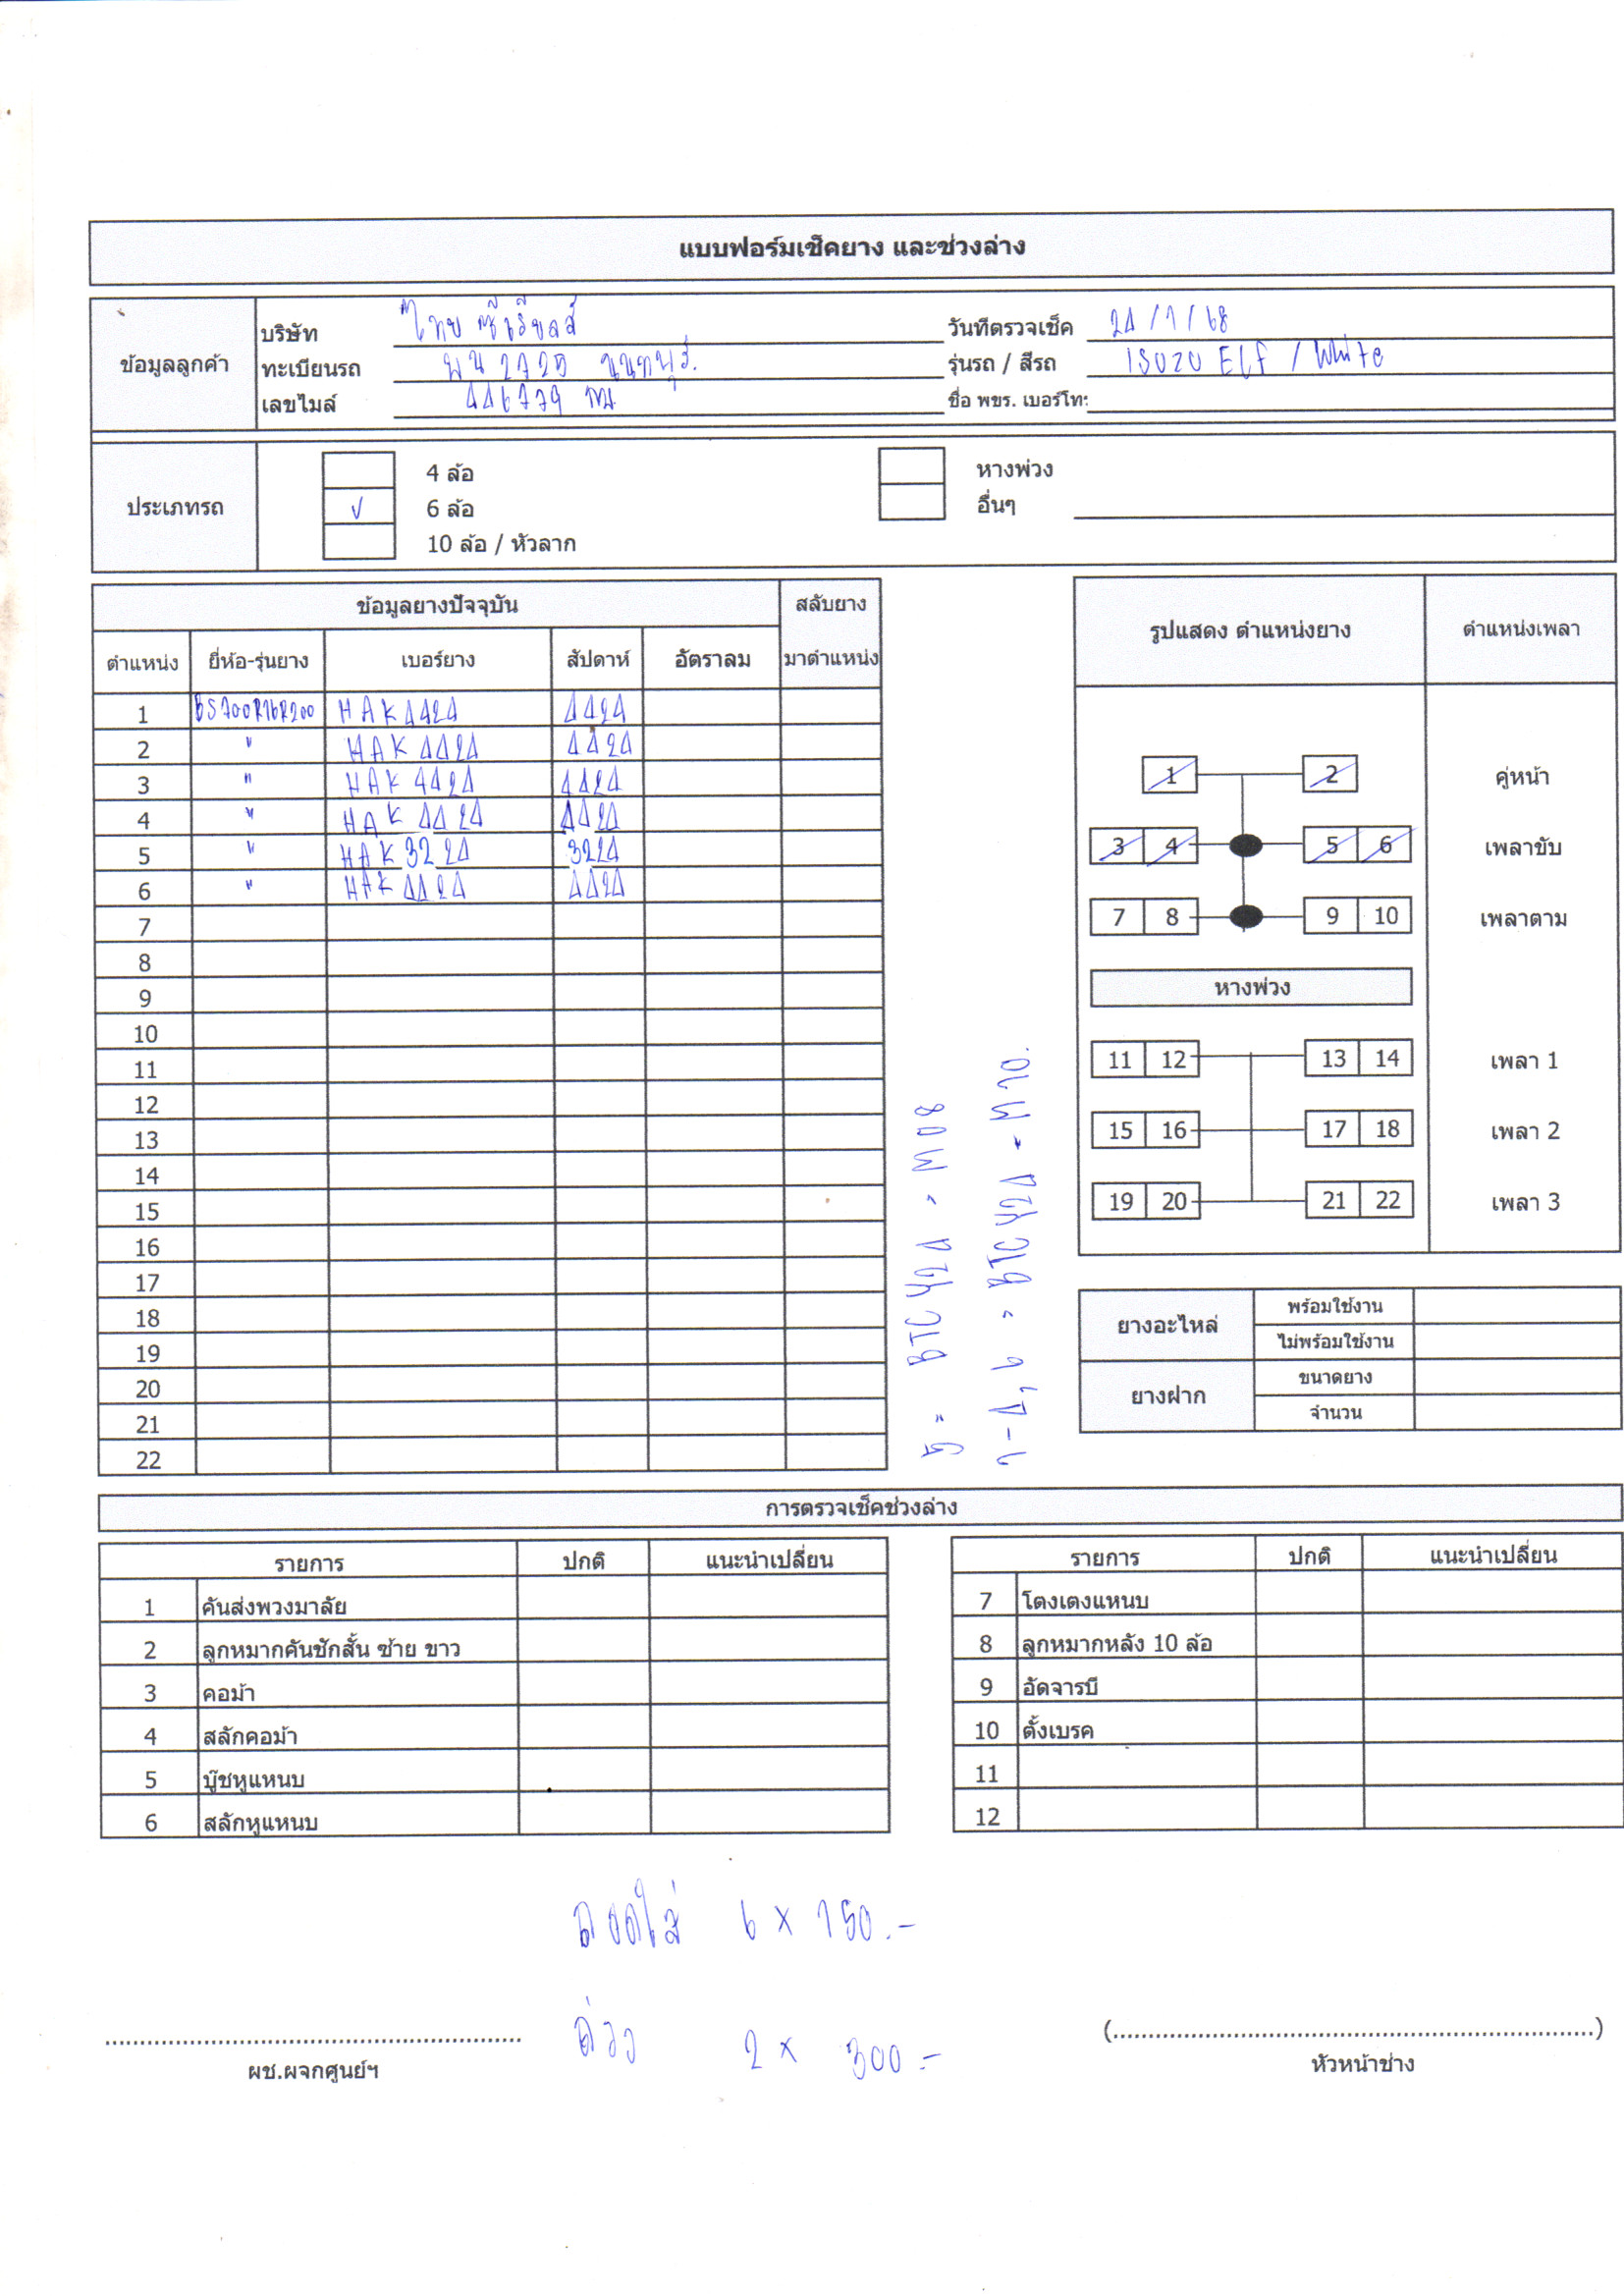 แบบฟอร์มเช็คยาง และช่วงล่าง
ข้อมูลลูกค้า
บริษัท ไทย ซีเรียลส์
ทะเบียนรถ นนทบุรี
เลขไมล์ 446779 กม
วันที่ตรวจเช็ค 24/1/68
รุ่นรถ / สีรถ ISUZU ELF / White
ชื่อ พขร. เบอร์โทร
ประเภทรถ
4 ล้อ
✓ 6 ล้อ
10 ล้อ / หัวลาก
หางพ่วง
อื่นๆ
ข้อมูลยางปัจจุบัน สลับยาง
ตำแหน่ง ยี่ห้อ-รุ่นยาง เบอร์ยาง สัปดาห์ อัตราลม มาตำแหน่ง
1 BS700R16R200 HAK4424 4424
2 " HAK 4424 4424
3 " HAK 4424 4424
4 " HAK 4424 4424
5 " HAK 3224 3224
6 " HAK 4424 4424
7
8
9
10
11
12
13
14
15
16
17
18
19
20
21
22
รูปแสดง ตำแหน่งยาง ตำแหน่งเพลา
1 2 คู่หน้า
3 4 5 6 เพลาขับ
7 8 9 10 เพลาตาม
หางพ่วง
11 12 13 14 เพลา 1
15 16 17 18 เพลา 2
19 20 21 22 เพลา 3
ยางอะไหล่ พร้อมใช้งาน
ไม่พร้อมใช้งาน
ยางฝาก ขนาดยาง
จำนวน
การตรวจเช็คช่วงล่าง
รายการ ปกติ แนะนำเปลี่ยน
1 คันส่งพวงมาลัย
2 ลูกหมากคันชักสั้น ซ้าย ขาว
3 คอม้า
4 สลักคอม้า
5 บู๊ชหูแหนบ
6 สลักหูแหนบ
รายการ ปกติ แนะนำเปลี่ยน
7 โตงเตงแหนบ
8 ลูกหมากหลัง 10 ล้อ
9 อัดจารบี
10 ตั้งเบรค
11
12
ถอดใส่ 6 x 150.-
ถ่วง 2 x 300.-
ผช.ผจกศูนย์ฯ
(..........)
หัวหน้าช่าง